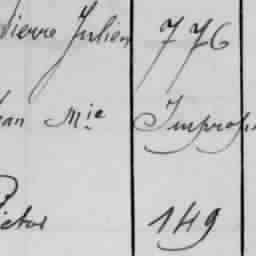 Pierre Julien 776
Jean Mie Impropr
Victor 149